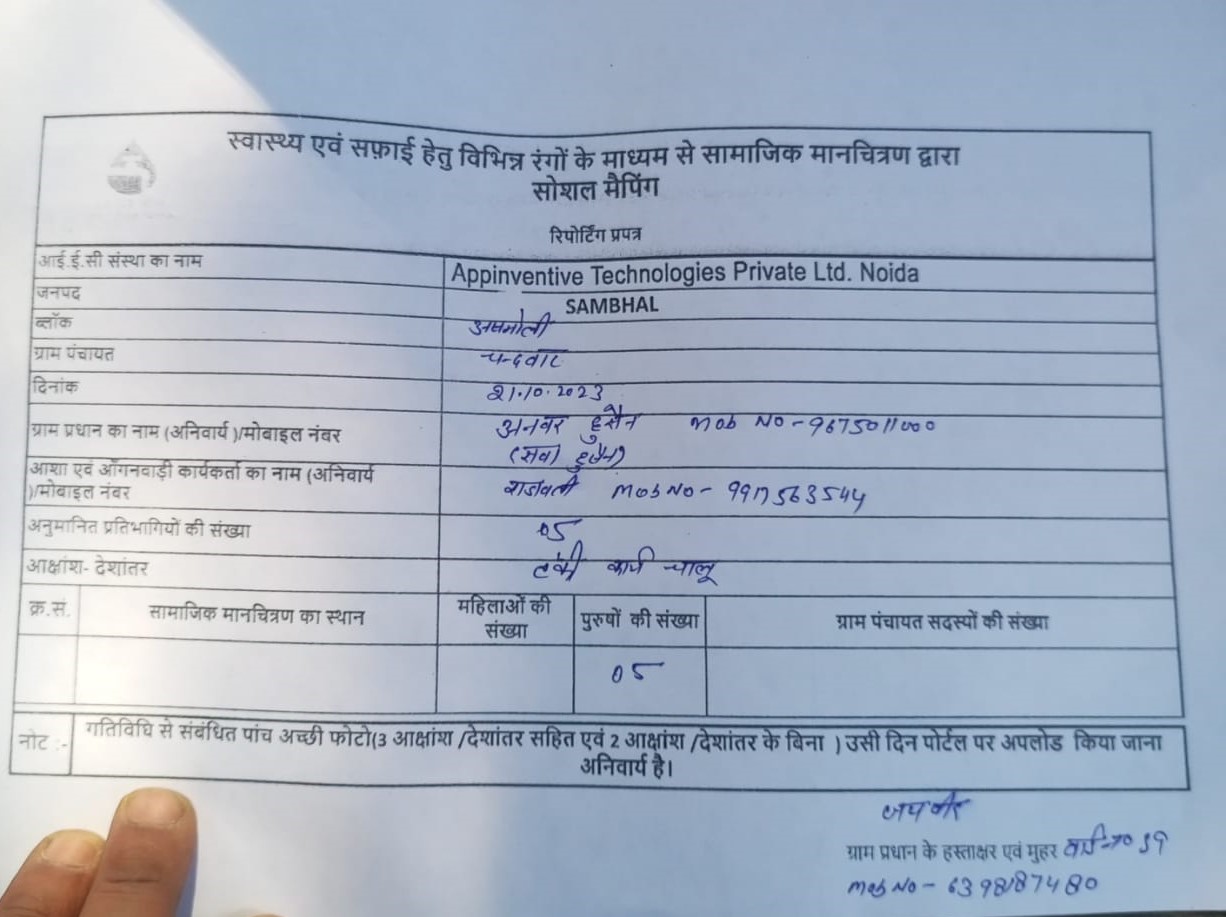 स्वास्थ्य एवं सफ़ाई हेतु विभिन्न रंगों के माध्यम से सामाजिक मानचित्रण द्वारा
सोशल मैपिंग
रिपोर्टिंग प्रपत्र
आई.ई.सी संस्था का नाम Appinventive Technologies Private Ltd. Noida
जनपद SAMBHAL
ब्लॉक असमोली
ग्राम पंचायत चन्दवार
दिनांक 21.10.2023
ग्राम प्रधान का नाम (अनिवार्य )/मोबाइल नंबर अनवर हुसैन Mob No - 9675011000
हुसैन)
आशा एवं आँगनवाड़ी कार्यकर्ता का नाम (अनिवार्य
)/मोबाइल नंबर Mob No - 9917563544
अनुमानित प्रतिभागियों की संख्या 05
आक्षांश- देशांतर टंकी कार्य चालू
क्र.सं. सामाजिक मानचित्रण का स्थान महिलाओं की संख्या पुरुषों की संख्या ग्राम पंचायत सदस्यों की संख्या
05
नोट :- गतिविधि से संबंधित पांच अच्छी फोटो(3 आक्षांश /देशांतर सहित एवं 2 आक्षांश /देशांतर के बिना ) उसी दिन पोर्टल पर अपलोड किया जाना
अनिवार्य है।
जयवीर
ग्राम प्रधान के हस्ताक्षर एवं मुहर
Mob No - 6398187480